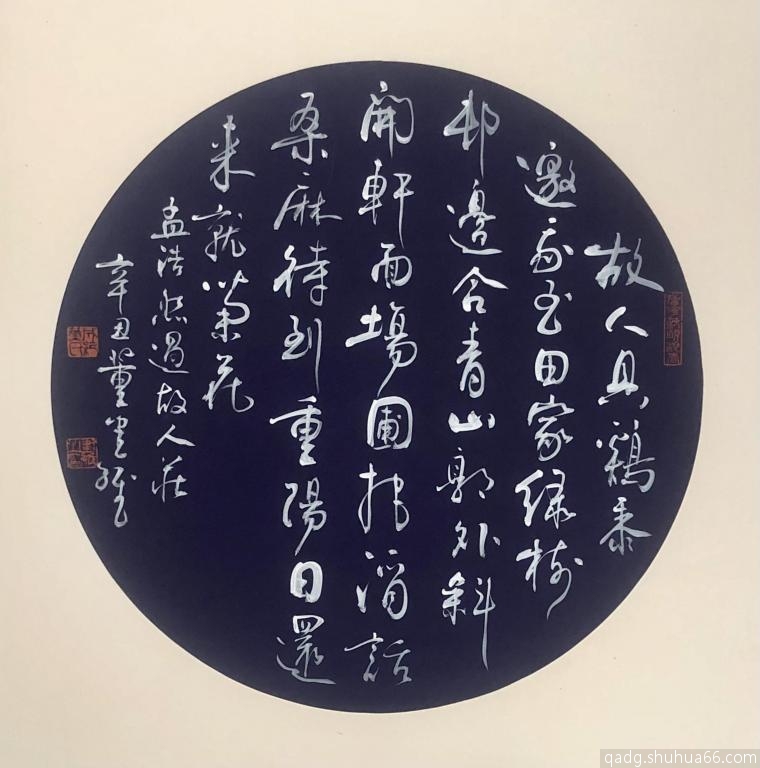 故人具鷄黍
邀我至田家緑樹
邨邊合青山郭外斜
開軒面場圃把酒話
桑麻待到重陽日還
来就菊花
孟浩然過故人莊
辛丑董
qadg.shuhua66.com